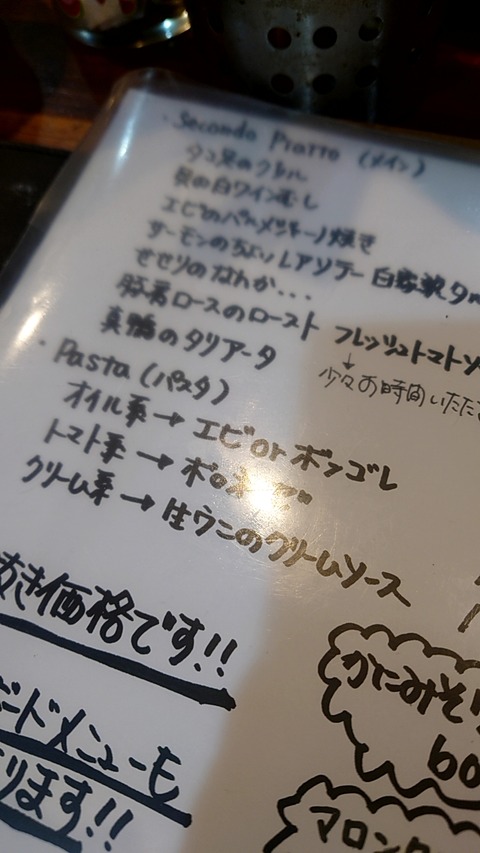 ・Secondo Piatto (メイン)
タコ足のグリル
貝の白ワインむし
エビのパルメザンチーノ焼き
サーモンのちょいレアソテー 白家製タル
せせりのなんか...
豚肩ロースのロースト フレッシュトマトソ
↓
少々お時間いただ
真鴨のタリアータ
・Pasta (パスタ)
オイル系→エビorボンゴレ
トマト系→ボロネーゼ
クリーム系→生ウニのクリームソース
抜き価格です!!
ードメニューも
ります!!
かにみそ
60
マロン